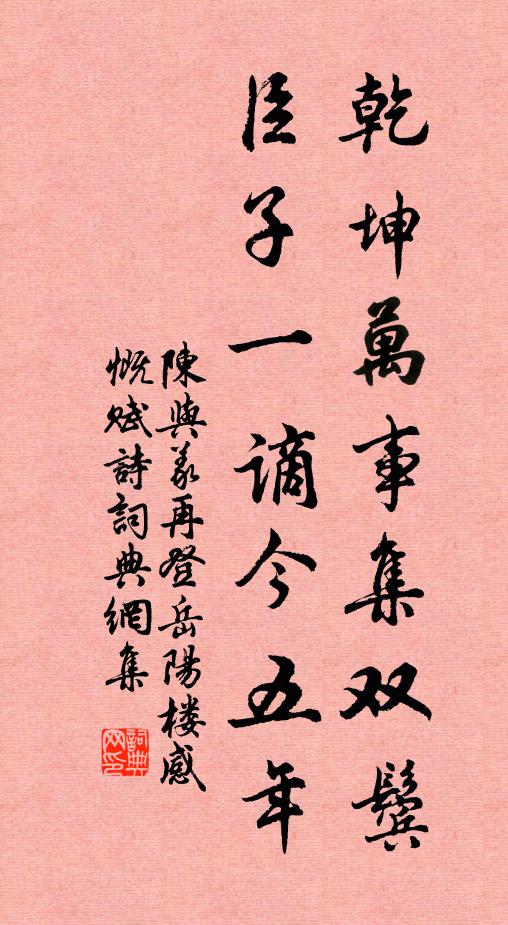 乾坤萬事集双鬓
臣子一謫今五年
陳與義再登岳陽楼感
慨赋詩詞典網集
詞典网印